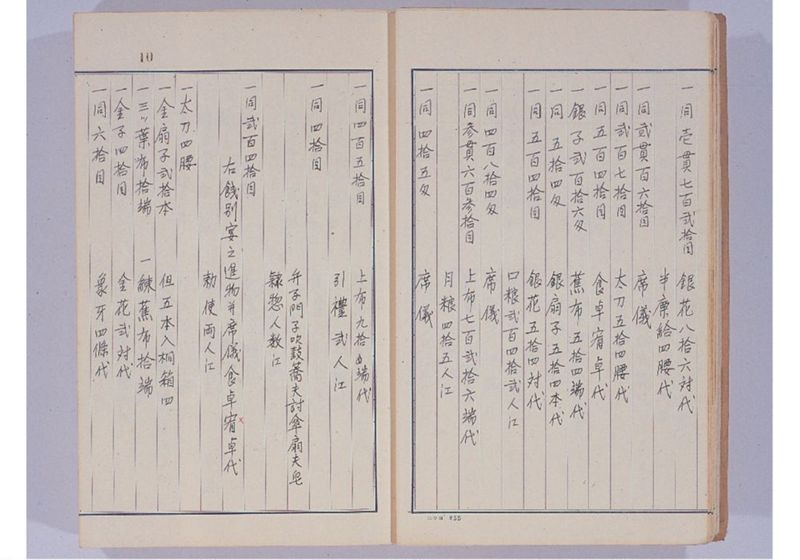 一同壱貫七百弐拾目 銀花八拾六対代
半廩給四腰代
一同弐貫百六拾目 席儀
一同弐百七拾目 太刀五拾四腰代
一同五百四拾目 食卓宥卓代
一銀子弐百拾六匁 蕉布五拾四端代
一同五拾四匁 銀扇子五拾四本代
一同五百四拾目 銀花五拾四対代
口粮弐百四拾弐人江
一同四百八拾四匁 席儀
一同参貫六百参拾目 上布七百弐拾六端代
月粮四拾五人江
一同四拾五匁 席儀
一同四百五拾目 上布九拾端代
引禮弐人江
一同四拾目
弁子門子吹鼓蕎夫討傘扇夫皂
隷惣人数江
一同弐百四拾目
右餞別宴之進物并席儀食卓宥卓代
勅使両人江
一太刀四腰
一金扇子弐拾本 但五本入桐箱四
一三ッ葉布拾端 一練蕉布拾端
一金子四拾目 金花弐対代
一同六拾目 象牙四條代
10